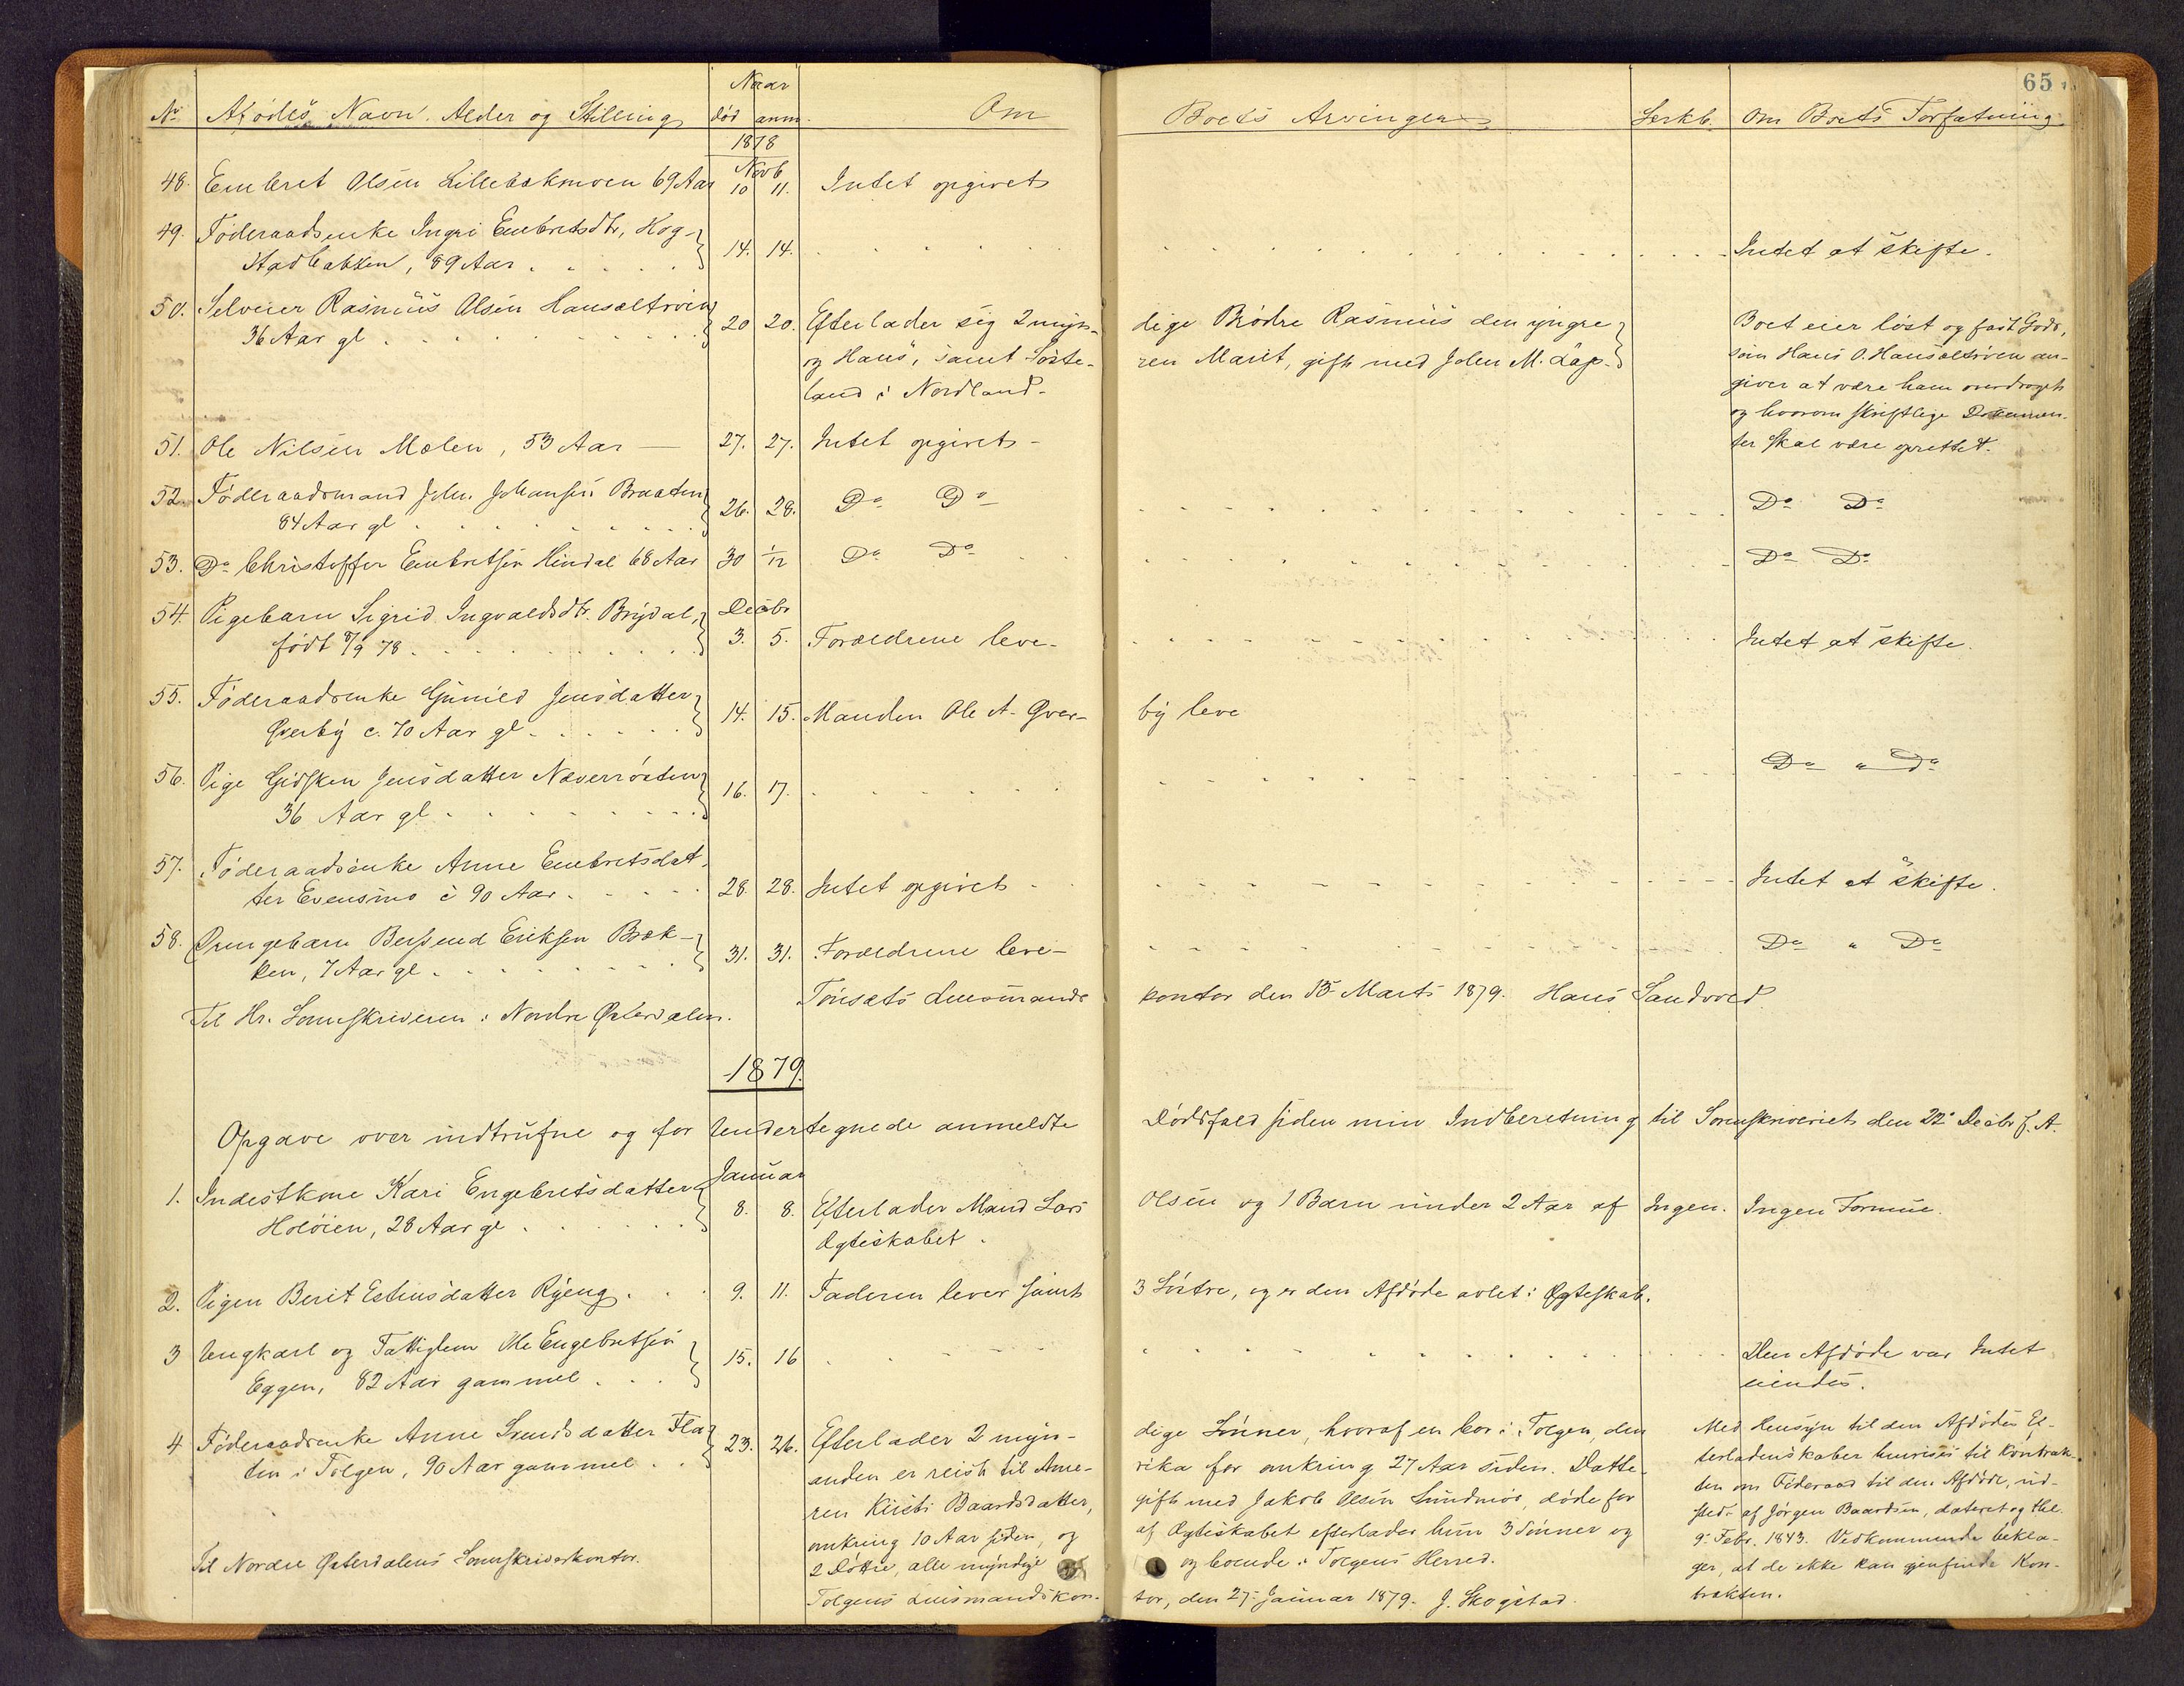 65
Naar
No Afdødes Navn. Alder og Stilling død anm. Om Boets Arvinger Serkb. Om Boets Forfatning.
1878
Novb
48. Embret Olsen Lillebækmoen 69 Aar 10 11. Intet opgivet
49. Føderaadsenke Ingri Embretsdtr, Hog-
stadbakken, 89 Aar 14. 14. Intet at skifte.
50. Selveier Rasmus Olsen Hansæltrøen
36 Aar gl 20 20. Efterlader sig 2 myn- dige Brødre Rasmus den yngre Boet eier løst og fast Gods,
og Hans, samt Søste- ren Marit, gift med John M. Lap- som Hans O. Hansæltrøen an-
land i Nordland. giver at være ham overdraget
og hvorom skriftlige Documen-
51. Ole Nilsen Mælen, 53 Aar 27. 27. Intet opgivet - ter skal være oprettet.
52. Føderaadsmand John Johansen Braaten
84 Aar gl 26. 28. Do Do Do Do
53. Do Christoffer Embretsen Hindal 68 Aar 30 1/12 Do Do Do Do
54. Pigebarn Sigrid Ingvaldsdtr. Brydal, Decbr
født 8/9 78. 3. 5. Forældrene leve. Intet at skifte.
55. Føderaadsenke Gunild Jensdatter
Qverby c. 70 Aar gl. 14. 15. Manden Ole A. Qver- by leve
Do " Do
56. Pige Gidsken Jensdatter Næverrøsten
36 Aar gl. 16. 17.
57. Føderaadsenke Anne Embretsdat-
ter Evensmo c 90 Aar. 28. 28. Intet opgivet Intet at skifte.
58. Drengebarn Bersvend Eriksen Bæk-
ken, 7 Aar gl. 31. 31. Forældrene leve- Do " Do
Tønsets Lensmands kontor den 15 Marts 1879. Hans Sandvold.
Til Hr. Sorenskriveren i Nordre Østerdalen.
1879.
Opgave over indtrufne og for Undertegnede anmeldte Dødsfald siden min Indberetning til Sorenskriveriet den 22 Decbr f. A.
Januar
1. Inderstkone Kari Engebretsdatter
Holøien, 28 Aar gl. 8. 8. Efterlader Mand Lars Olsen og 1 Barn under 2 Aar af Ingen. Ingen Formue.
Ægteskabet.
2. Pigen Berit Estensdatter Ryeng. 9. 11. Faderen lever samt 3 Søstre, og er den Afdøde avlet i Ægteskab.
3 Ungkarl og Fattiglem Ole Engebretsen
Eggen, 82 Aar gammel. 15. 16 Den Afdøde var Intet
eiendes.
4 Føderaadsenke Anne Svendsdatter Fla-
ten i Tolgen, 90 Aar gammel. 23. 26. Efterlader 2 myn- dige Sønner, hvoraf en bor i Tolgen, den Med Hensyn til den Afdødes Ef-
anden er reist til Ame- rika for omkring 27 Aar siden. Datte- terladenskaber henvises til Kontrak-
ren Kirsti Baardsdatter, gift med Jakob Olsen Sundmoe, døde for ten om Føderaad til den Afdøde, ud-
omkring 10 Aar siden, og af Ægteskabet efterlader hun 3 Sønner og sted af Jørgen Baardsen, dateret og thl.
2 Døttre, alle myndige og boende i Tolgens Herred. 9 Febr. 1843. Vedkommende bekla-
Til Nordre Østerdalens Sorenskriverkontor. ger, at de ikke kan gjenfinde Kon-
Tolgens Lensmandskon- tor, den 27 Januar 1879. J. Skogstad. trakten.